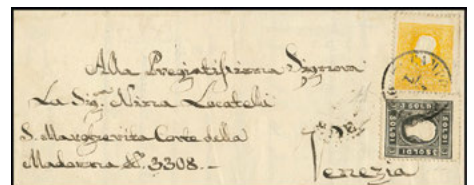 Alla Pregiatissima Signora
La Sig.ra Nina Locatelli
S. Margherita Corte della
Madonna N. 3308.-
Venezia
SOLDI
SOLDI